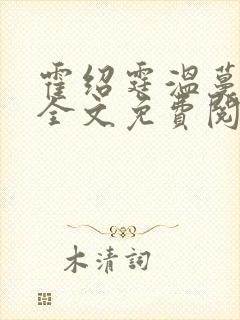 霍绍霆温蔓
全文免費閱
木清詞